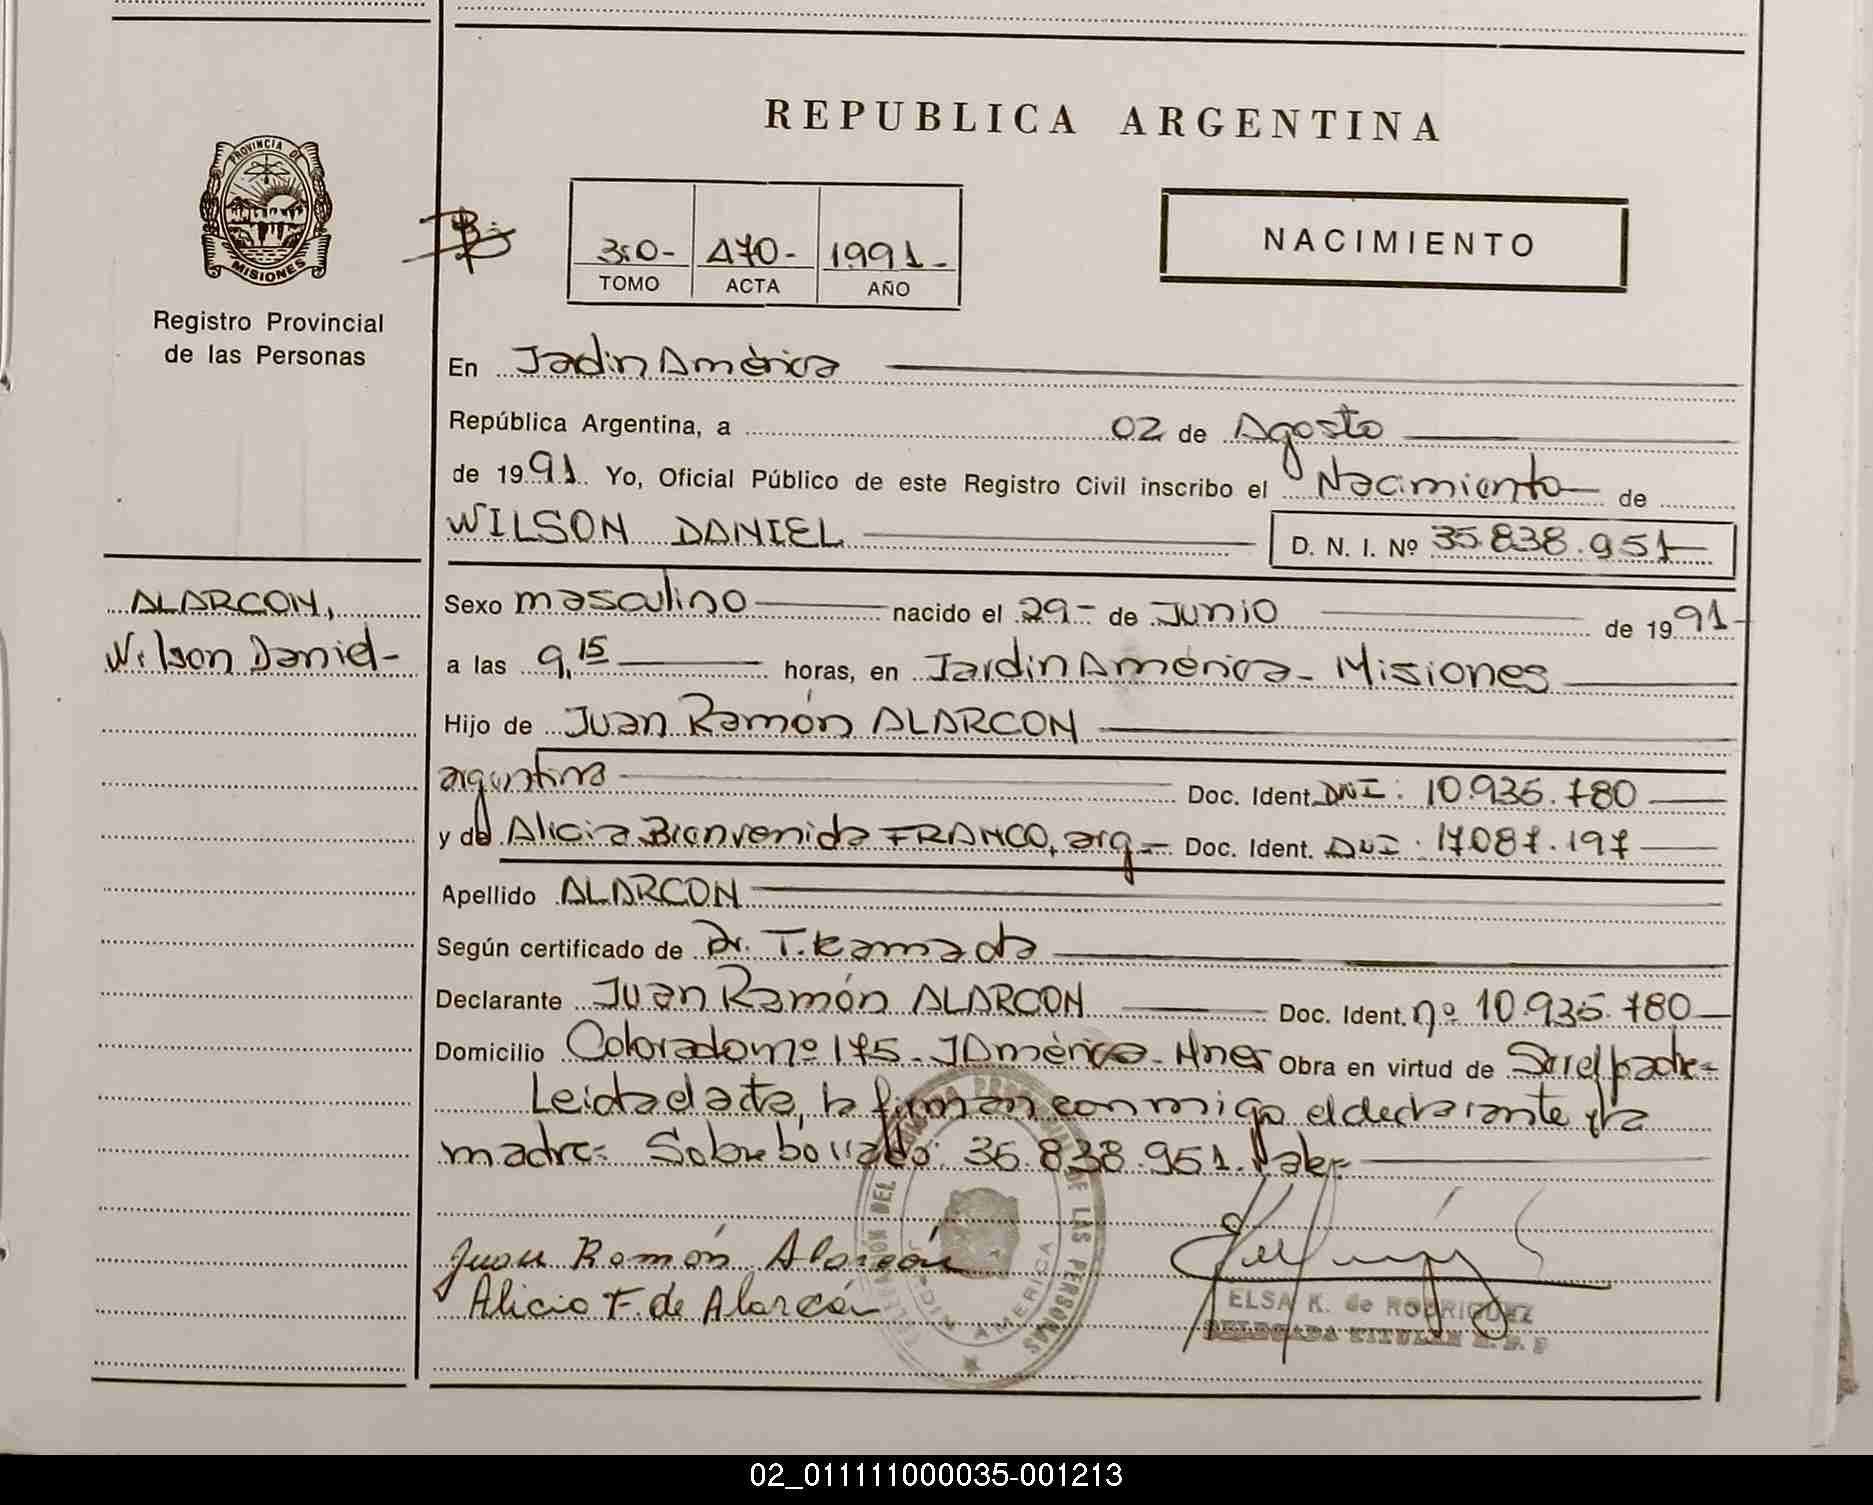 REPUBLICA ARGENTINA
PROVINCIA DE MISIONES
Registro Provincial
de las Personas
TOMO ACTA 1991- AÑO
NACIMIENTO
En Jadin América
República Argentina, a 02 de Agosto
de 1991. Yo, Oficial Público de este Registro Civil inscribo el Nacimiento de
WILSON DANIEL D. N. I. Nº 35.838.951
ALARCON,
Wilson Daniel-
Sexo masculino nacido el 29- de Junio de 1991-
a las 9,15 horas, en Jardin América - Misiones
Hijo de Juan Ramón ALARCON
argentino Doc. Ident. DNI: 10.935.780
y de Alicia Bienvenida FRANCO, arg- Doc. Ident. DNI: 17.087.197
Apellido ALARCON
Según certificado de Dr. T. Kamada
Declarante Juan Ramón ALARCON Doc. Ident. nº 10.935.780
Domicilio Colorado nº 175- J América- Mnes Obra en virtud de Ser el padre=
Leida el acta, la firman conmigo el declarante y la
madre= Sobreborrado: 35.838.951. Vale=
Juan Ramón Alarcón
Alicia F. de Alarcón
ELSA K. de RODRIGUEZ
DELEGADA TITULAR
02_011111000035-001213